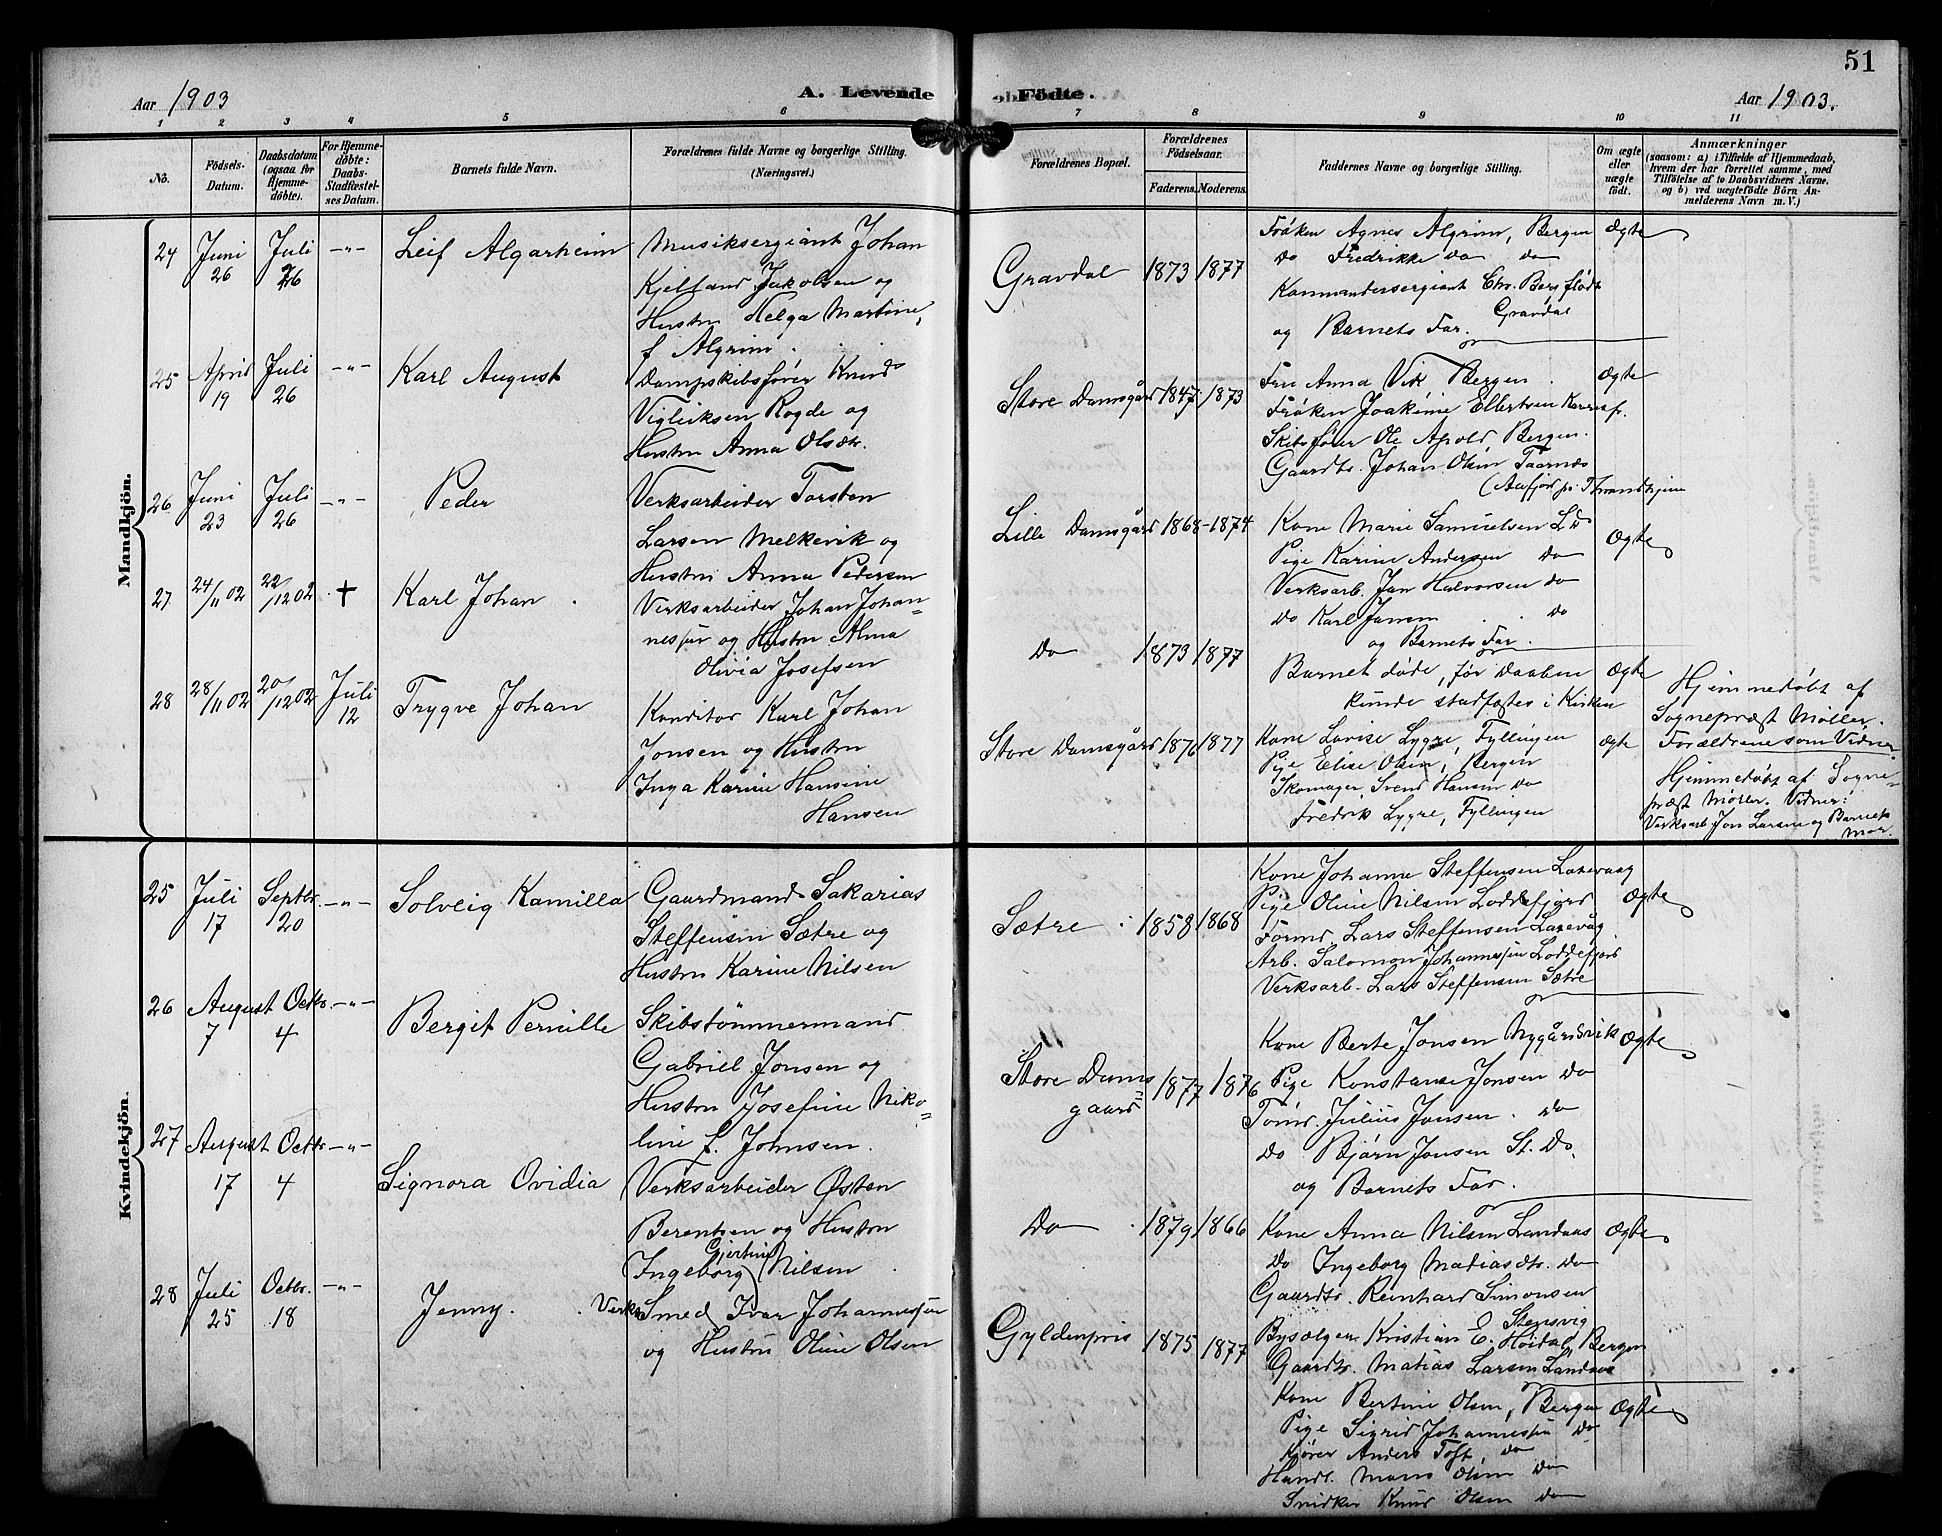 51
Aar 1903
A. Levende Födte.
Aar 1903.
1 2 3 4 5 6 7 8 9 10 11
No.
Födsels-
Datum.
Daabsdatum
(ogsaa for
Hjemme-
döbte).
For Hjemme-
döbte:
Daabs-
Stadfæstel-
ses Datum.
Barnets fulde Navn.
Forældrenes fulde Navne og borgerlige Stilling.
(Næringsvei.)
Forældrenes Bopæl.
Forældrenes
Födselsaar.
Faderens. Moderens.
Faddernes Navne og borgerlige Stilling.
Om ægte
eller
uægte
födt.
Anmærkninger
(saasom: a) i Tilfælde af Hjemmedaab,
hvem der har forrettet samme, med
Tilföielse af to Daabsvidners Navne,
og b) ved uægtefödte Börn An-
melderens Navn m. V.)
Mandkjön.
24 Juni 26 Juli 26 -"- Leif Algarheim
Musiksergiant Johan
Kjelland Jakobsen og
Hustru Helga Martine,
f. Algrim.
Gravdal 1873 1877
Frøken Agnes Algrim, Bergen
Do Fredrikke do do
Kommandersergiant Chr. Bergflødt
Gravdal
og Barnets Far.
Ægte
25 April 19 Juli 26 -"- Karl August
Dampskibsfører Knud
Vigleiksen Rogde og
Hustru Anna Olsdtr.
Store Damsgård 1847 1873
Fru Anna Vik Bergen.
Frøken Joakime Ellertsen
Skibsfører Ole Apold, Bergen.
Gaardbr. Johan Olsen Taarnæs
(Aafjord pr. Throndhjem
Ægte
26 Juni 23 Juli 26 -"- Peder
Verksarbeider Torsten
Larsen Melkevik og
Hustru Anna Pedersen
Lille Damsgård 1868-1874
Kone Marie Samuelsen L. D.
Pige Karine Andersen do
Verksarb. Jan Halvorsen do
Do Karl Jansen do
og Barnets Far.
Ægte
27 24/11 02 22/12 02 † Karl Johan
Verksarbeider Johan Johan-
nessen og Hustru Alma
Olivia Josefsen
Do 1873 1877
Barnet døde, før Daaben
kunde stadfæstes i Kirken
Ægte
Hjemmedøbt af
Sogneprest Møller.
Forældrene som Vidner
28 28/11 02 20/12 02 Juli 12 Trygve Johan
Konditor Karl Johan
Jonsen og Hustru
Inga Karine Hansine
Hansen
Store Damsgård 1876 1877
Kone Lovise Lygre, Fyllingen
Pige Elise Olsen, Bergen
Skomager Svend Hansen do
Fredrik Lygre, Fyllingen
Ægte
Hjemmedøbt af Sogne-
præst Møller. Vidner:
Verksarb. Jon Larsen og Barnets
Mor.
Kvindekjön.
25 Juli 17 Septbr. 20 -"- Solveig Kamilla
Gaardmand Sakarias
Steffensen Sætre og
Hustru Karine Nilsen
Sætre 1858 1868
Kone Johanne Steffensen Laxevaag
Pige Oline Nilsen Loddefjord
Formd. Lars Steffensen Laxevåg
Arb. Salomon Johannessen Loddefjord
Verksarb. Lars Steffensen Sætre
Ægte
26 August 7 Octbr. 4 -"- Bergit Pernille
Skibstømmermand
Gabriel Jonsen og
Hustru Josefine Niko-
line f. Johnsen.
Store Dams-
gaard 1877 1876
Kone Berte Jonsen Nygårdsvik
Pige Konstanse Jonsen Do
Tømd. Julius Jonsen. do
Do Bjørn Jonsen St. Do.
og Barnets Far.
Ægte
27 August 17 Octbr. 4 -"- Signora Ovidia
Verksarbeider Østen
Berentsen og Hustru
Ingeborg Gjertine Nilsen
Do 1879 1866
Kone Anna Nilsen Landaas
Do Ingeborg Matiasdtr. Do
Gaardbr. Reinhard Simonsen
Stensvig
Bysælger Kristian E. Høidal, Bergen
Gaardbr. Matias Larsen Landaas
Ægte
28 Juli 25 Octbr. 18 -"- Jenny.
Verks. Smed Ivar Johannessen
og Hustru Oline Olsen
Gyldenpris 1875 1877
Kone Bertine Olsen, Bergen
Pige Sigrid Johannessen Do
Kjører Anders Toft, do
Handl. Mons Olsen Do
Snidker Knud Olsen do
Ægte